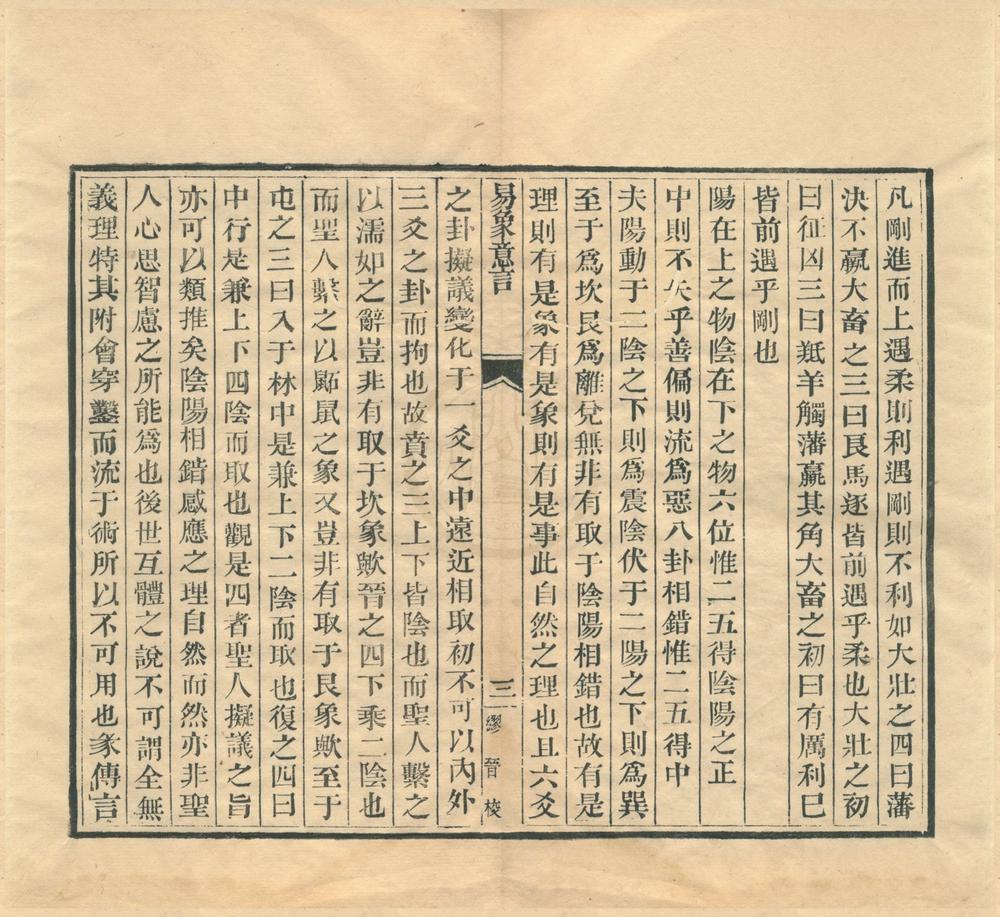 凡剛進而上遇柔則利遇剛則不利如大壯之四曰藩
決不羸大畜之三曰良馬逐皆前遇乎柔也大壯之初
曰征凶三曰羝羊觸藩羸其角大畜之初曰有厲利巳
皆前遇乎剛也
陽在上之物陰在下之物六位惟二五得陰陽之正
中則不失乎善偏則流爲惡八卦相錯惟二五得中
夫陽動于二陰之下則爲震陰伏于二陽之下則爲巽
至于爲坎艮爲離兌無非有取于陰陽相錯也故有是
理則有是象有是象則有是事此自然之理也且六爻
易象意言
三
繆晉校
之卦擬議變化于一爻之中遠近相取初不可以內外
三爻之卦而拘也故賁之三上下皆陰也而聖人繫之
以濡如之辭豈非有取于坎象歟晉之四下乘二陰也
而聖人繫之以鼫鼠之象又豈非有取于艮象歟至于
屯之三曰入于林中是兼上下二陰而取也復之四曰
中行是兼上下四陰而取也觀是四者聖人擬議之旨
亦可以類推矣陰陽相錯感應之理自然而然亦非聖
人心思智慮之所能爲也後世互體之說不可謂全無
義理特其附會穿鑿而流于術所以不可用也彖傳言